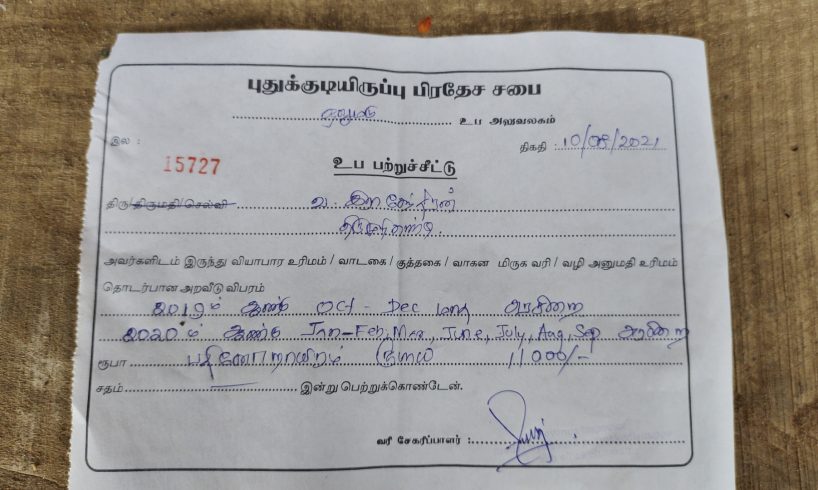 புதுக்குடியிருப்பு பிரதேச சபை
உப அலுவலகம்
இல : 15727 திகதி : 10/08/2021
உப பற்றுச்சீட்டு
திரு/திருமதி/செல்வி வ.
அவர்களிடம் இருந்து வியாபார உரிமம் / வாடகை / குத்தகை / வாகன மிருக வரி / வழி அனுமதி உரிமம்
தொடர்பான அறவீடு விபரம்
2019ம் ஆண்டு Oct - Dec
2020ம் ஆண்டு Jan-Feb, Mar, June, July, Aug, Sep
ரூபா பதினோராயிரம் 11000/-
சதம் இன்று பெற்றுக்கொண்டேன்.
வரி சேகரிப்பாளர் :